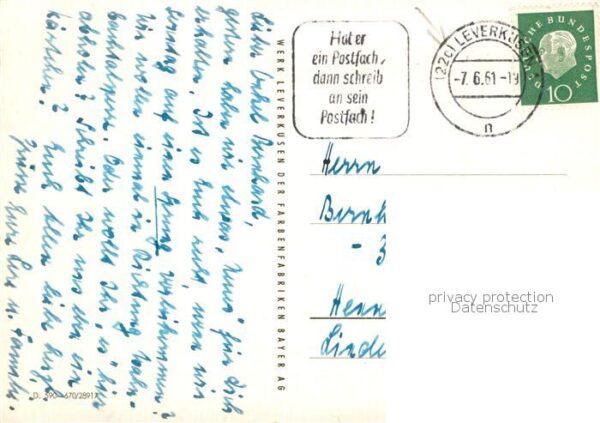 Lieber Onkel Bernhard,
gestern haben wir etwas für Dich
erhalten. Ist es Euch recht, wenn wir
Sonntag auf einen Sprung vorbeikommen?
Wir wollen einmal in Richtung
Oder wollt Ihr, es hier
abholen? Schreibt Ihr uns ein
Kärtchen? Euch allen liebe herzl.
Grüße Eure u. Familie.
WERK LEVERKUSEN DER FARBENFABRIKEN BAYER AG
D. 590 - 670/28917
Hat er
ein Postfach,
dann schreib
an sein
Postfach!
(22c) LEVERKUSEN
-7.6.61-19
n
DEUTSCHE BUNDESPOST
10
Herrn
Bernh
- 3
Henn
Linde
privacy protection
Datenschutz